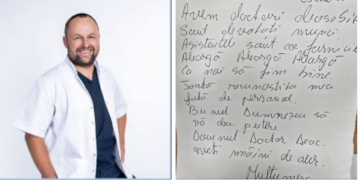 Avem doctori deosebiți
Sunt devotați muncii
Asistentele sunt ca furnicile
Aleargă Aleargă Aleargă
Ca noi să fim bine
Toată recunoștința mea
față de personal.
Bunul Dumnezeu să
vă dea putere
Domnul Doctor
aveți mâini de aur.
Mulțumesc